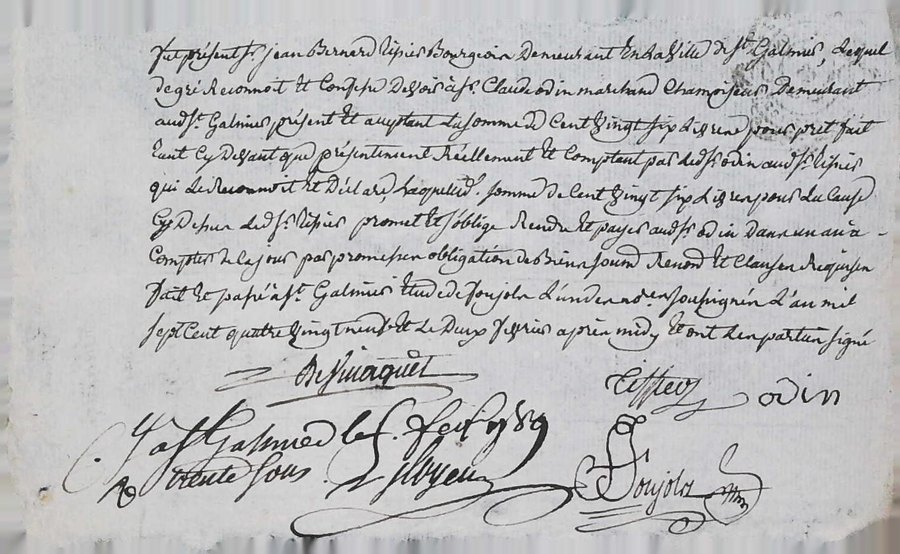 fut présent sr. jean Bernard tissier Bourgeois Demeurant En La Ville de st. Galmier, Lequel
de gré Reconnoit Et Confesse Devoir à sr Claude odin marchand Demeurant
aud st. Galmier présent Et acceptant La somme de Cent Vingt six Livres pour pret fait
tant Cy Devant que présentement Réellement Et Comptant par led sr. odin aud sr. tissier
qui Le Reconnoit Et Déclare, Laquelle d. somme de Cent Vingt six Livres pour La Cause
Cy Dessus Led sr. tissier promet Et s'oblige Rendre Et payer aud sr odin Dans un an à
Compter De Ce jour par promesses obligation de Biens soumd Renond Et Clauses Requises
fait Et passé à st. Galmier Etude de Soujols L'un des nores soussignés L'an mil
sept Cent quatre Vingt neuf Et Le Deux fevrier après midy Et ont Les parties signé
tissier odin
à st Galmier le fevr 1789
trente sous
Soujols